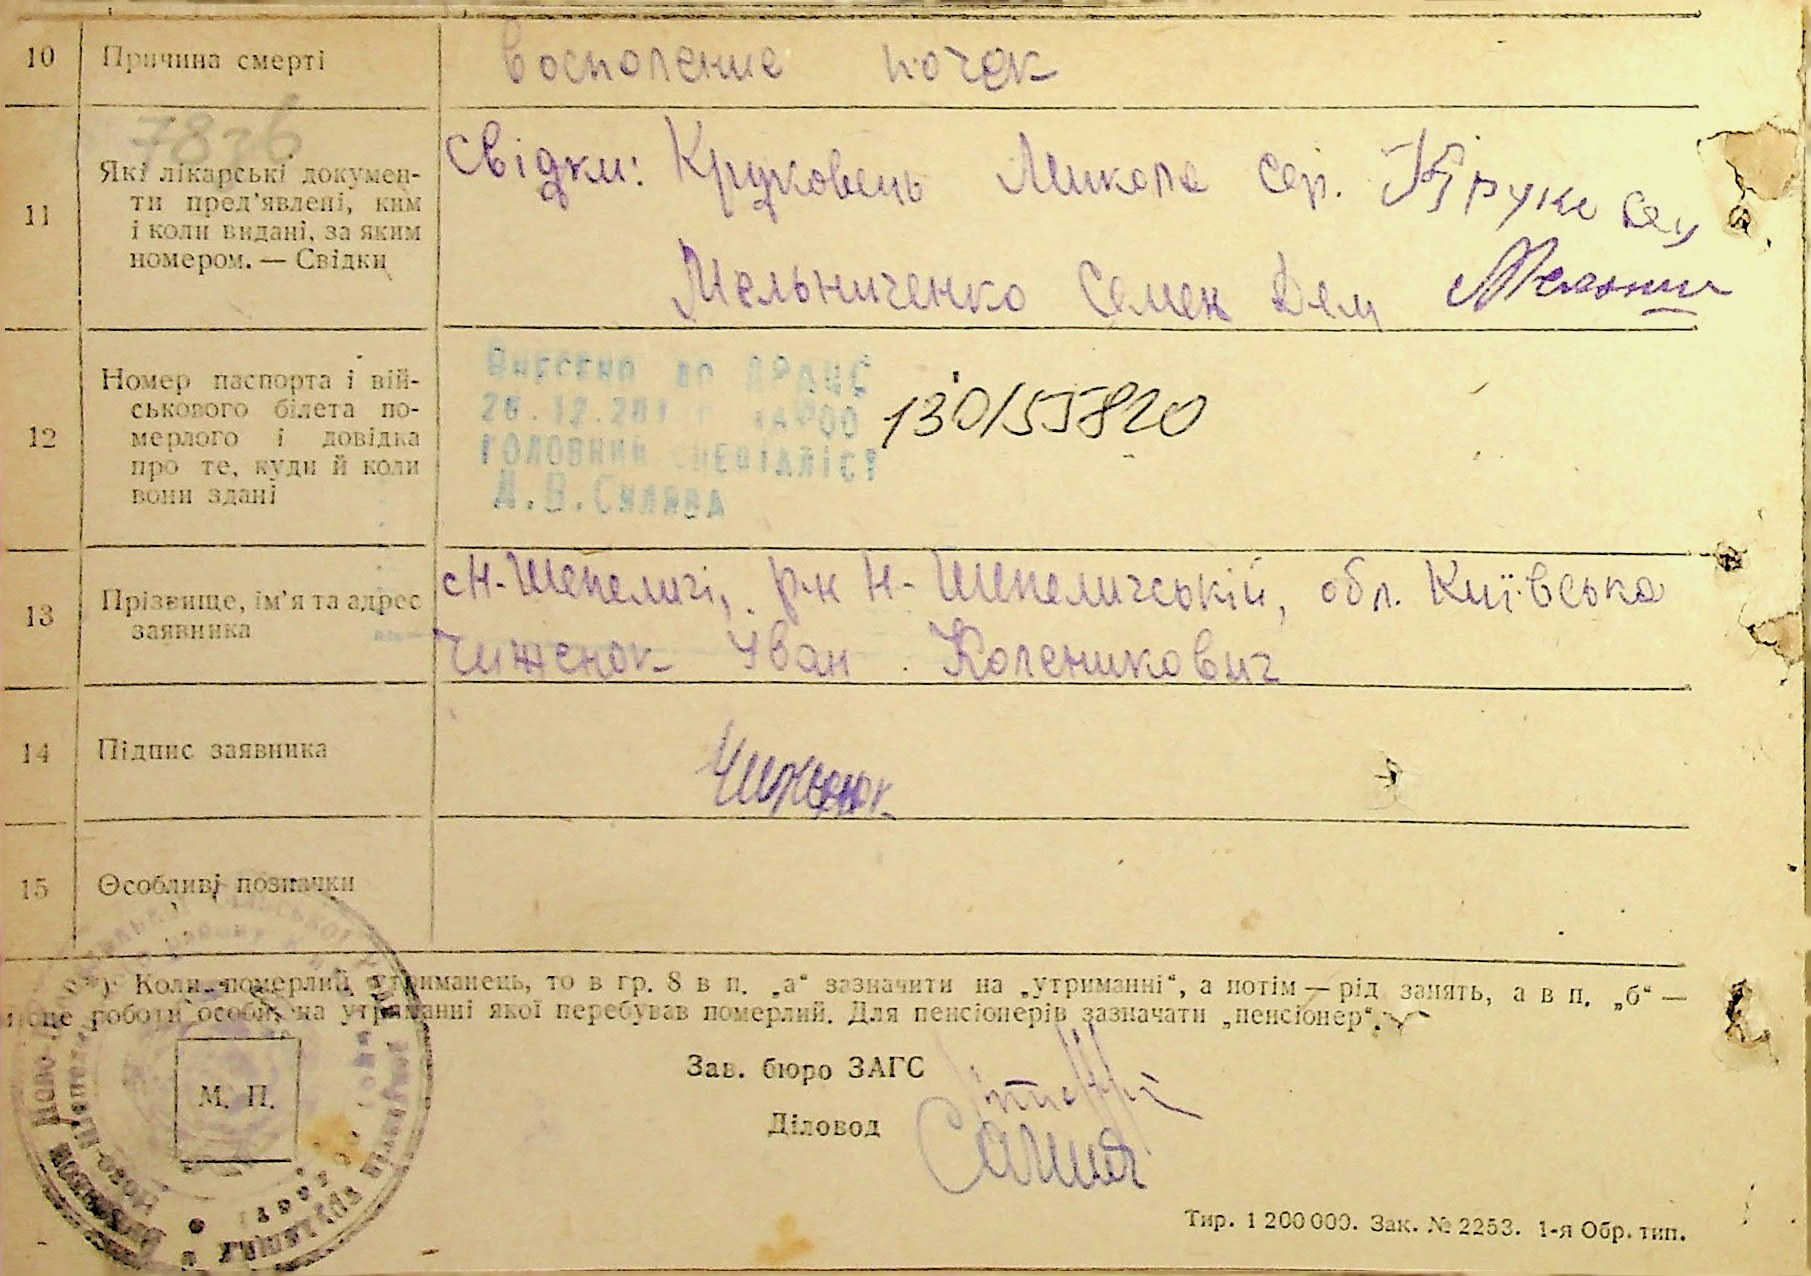 10 Причина смерти восполение почек
7836
11 Які лікарські докумен-
ти пред'явлені, ким
і коли видані, за яким
номером. — Свідки
Свідки: Круковець Микола сер.
Мельниченко Семен Дем
12 Номер паспорта і вій-
ськового білета по-
мерлого і довідка
про те, куди й коли
вони здані
Внесено до ДРАЦС
ГОЛОВНИЙ СПЕЦІАЛІСТ
130/55820
13 Прізвище, ім'я та адрес
заявника
с Н-Шепеличі, р-н Н-Шепеличській, обл. Київська
Чиженок Іван Коленикович
14 Підпис заявника
Чиженок
15 Особливі позначки
Коли померлий утриманець, то в гр. 8 в п. „а“ зазначити на „утриманні“, а потім — рід занять, а в п. „б“ —
місце роботи особи, на утриманні якої перебував померлий. Для пенсіонерів зазначати „пенсіонер“.
М. П.
Зав. бюро ЗАГС
Діловод
Тир. 1 200 000. Зак. № 2253. 1-я Обр. тип.